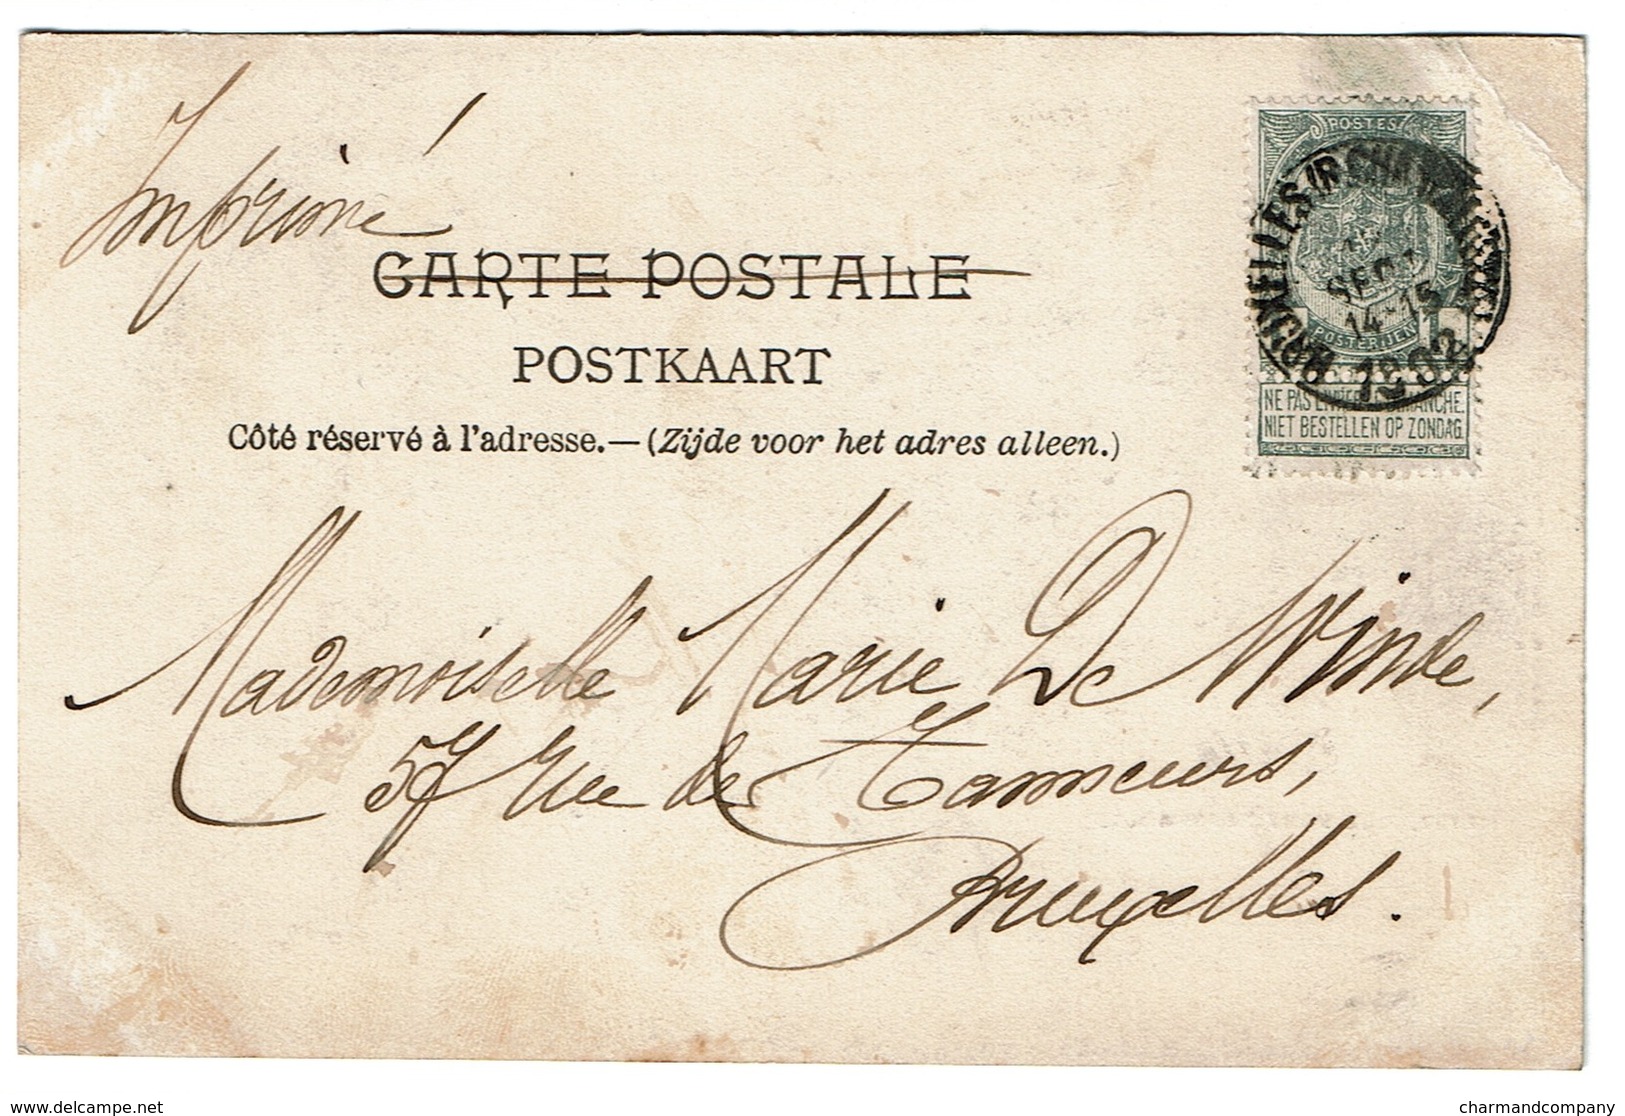 Imprimé
CARTE POSTALE
POSTKAART
Côté réservé à l'adresse.—(Zijde voor het adres alleen.)
POSTES
BRUXELLES
SEPT
14-15
1902
POSTERIJEN
NE PAS LIVRER LE DIMANCHE.
NIET BESTELLEN OP ZONDAG.
Mademoiselle Marie De Winde,
57 rue des Tanneurs,
Bruxelles.
delcampe.net
charmandcompany